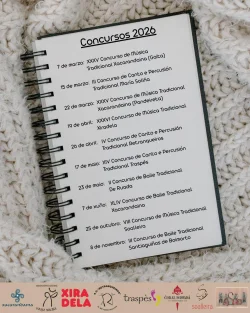 Concursos 2026
7 de marzo: XXXV Concurso de Música
Tradicional Xacarandaina (Gaita)
15 de marzo: III Concurso de Canto e Percusión
Tradicional María Saliña
22 de marzo: XXXV Concurso de Música Tradicional
Xacarandaina (Pandeireta)
19 de abril: XXXVI Concurso de Música Tradicional
Xiradela
26 de abril: IV Concurso de Canto e Percusión
Tradicional Retrouqueiros
17 de maio: XIV Concurso de Canto e Percusión
Tradicional Traspés
23 de maio: II Concurso de Baile Tradicional
De Ruada
7 de xuño: XLIV Concurso de Baile Tradicional
Xacarandaina
25 de outubro: VIII Concurso de Música Tradicional
Soalleira
8 de novembro: III Concurso de Baile Tradicional
Santiaguiños de Boimorto
XIRA
DELA
traspés